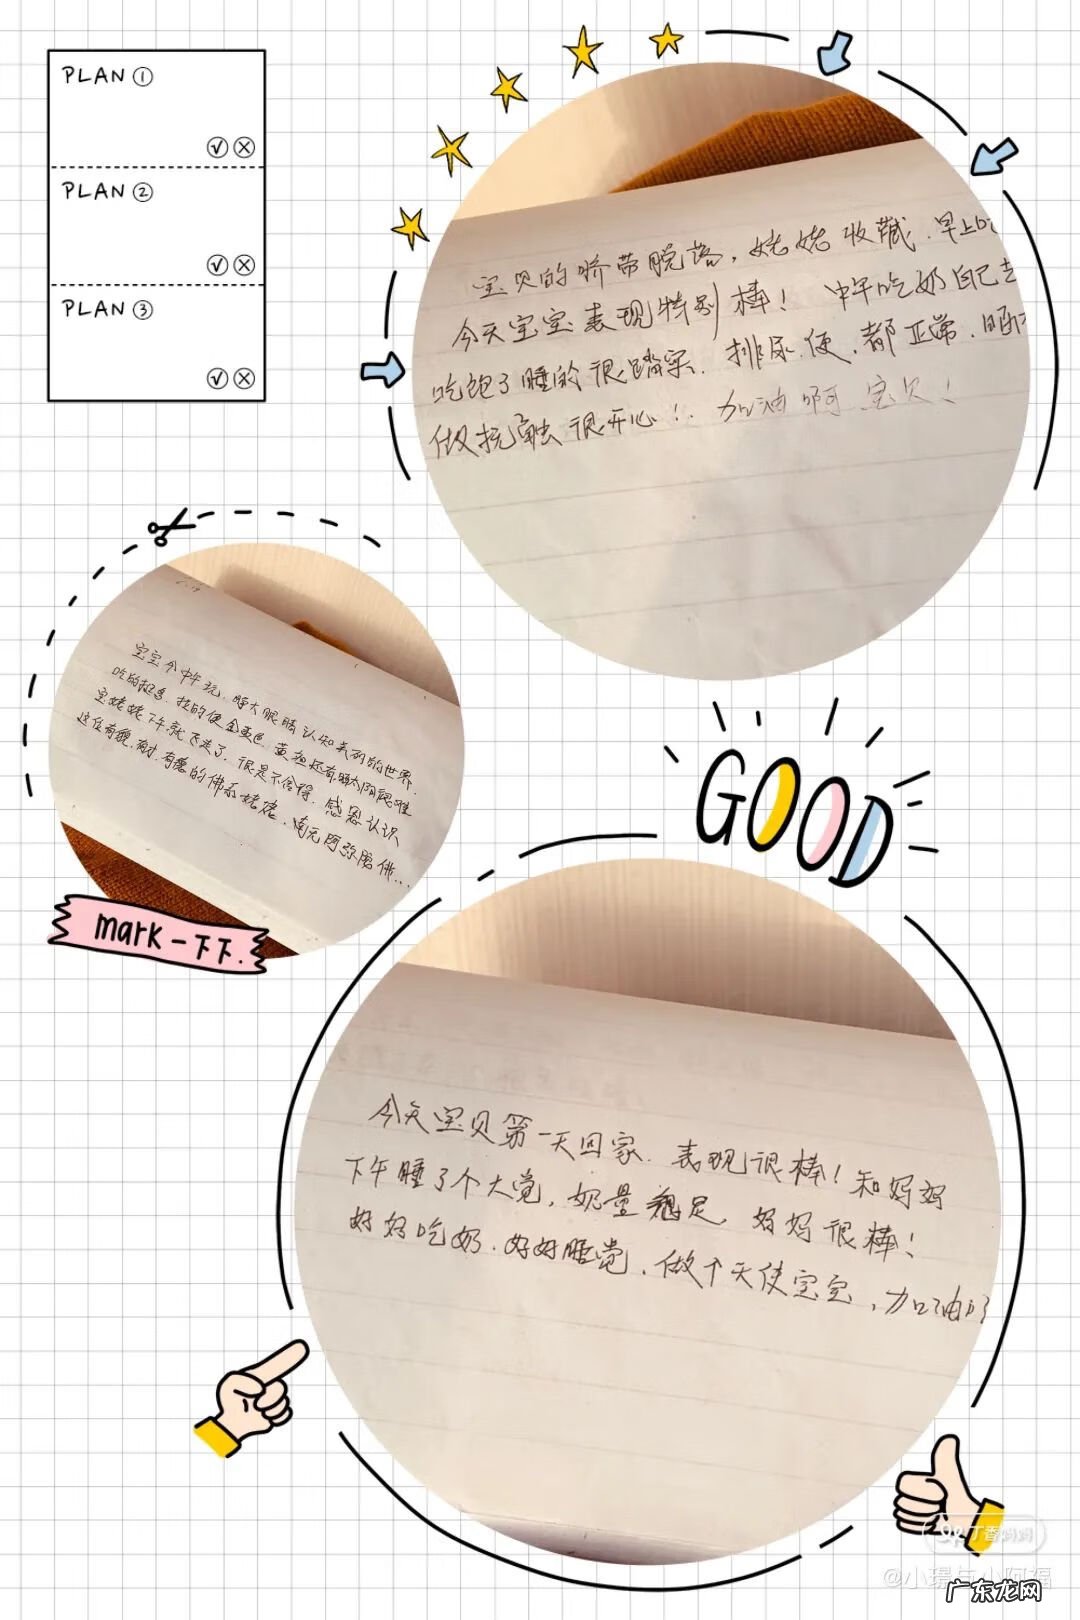 PLAN ①
PLAN ②
PLAN ③
宝贝的脐带脱落，姥姥收藏.早上
今天宝宝表现特别棒！中午吃奶自己
吃饱了睡的很踏实.排尿.便.都正常.
做抚触很开心！.加油啊.宝贝！
宝宝今中午玩.睁大眼睛认知美丽的世界.
吃的挺多.拉的便金黄色.黄疸还有晒太阳
宝姥姥下午就飞走了.很是不舍得.感恩认识
这位有貌.有才.有德的佛系姥姥.南无阿弥陀佛...
mark一下下.
GOOD
今天宝贝第一天回家.表现很棒！和妈妈
下午睡了个大觉，奶量充足.妈妈很棒！
好好吃奶.好好睡觉.做个天使宝宝，加油
丁香妈妈
@小璟与小阿福
广东龙网